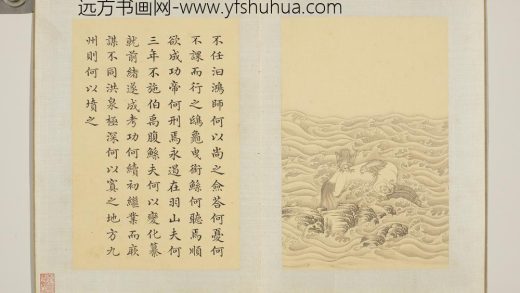 远方书画网-www.yfshuhua.com
不任汩鴻師何以尚之僉荅何憂何
不課而行之鴟龜曳銜鯀何聽焉順
欲成功帝何刑焉永遏在羽山夫何
三年不施伯禹腹鯀夫何以變化纂
就前緒遂成考功何續初繼業而厥
謀不同洪泉極深何以寘之地方九
州則何以墳之